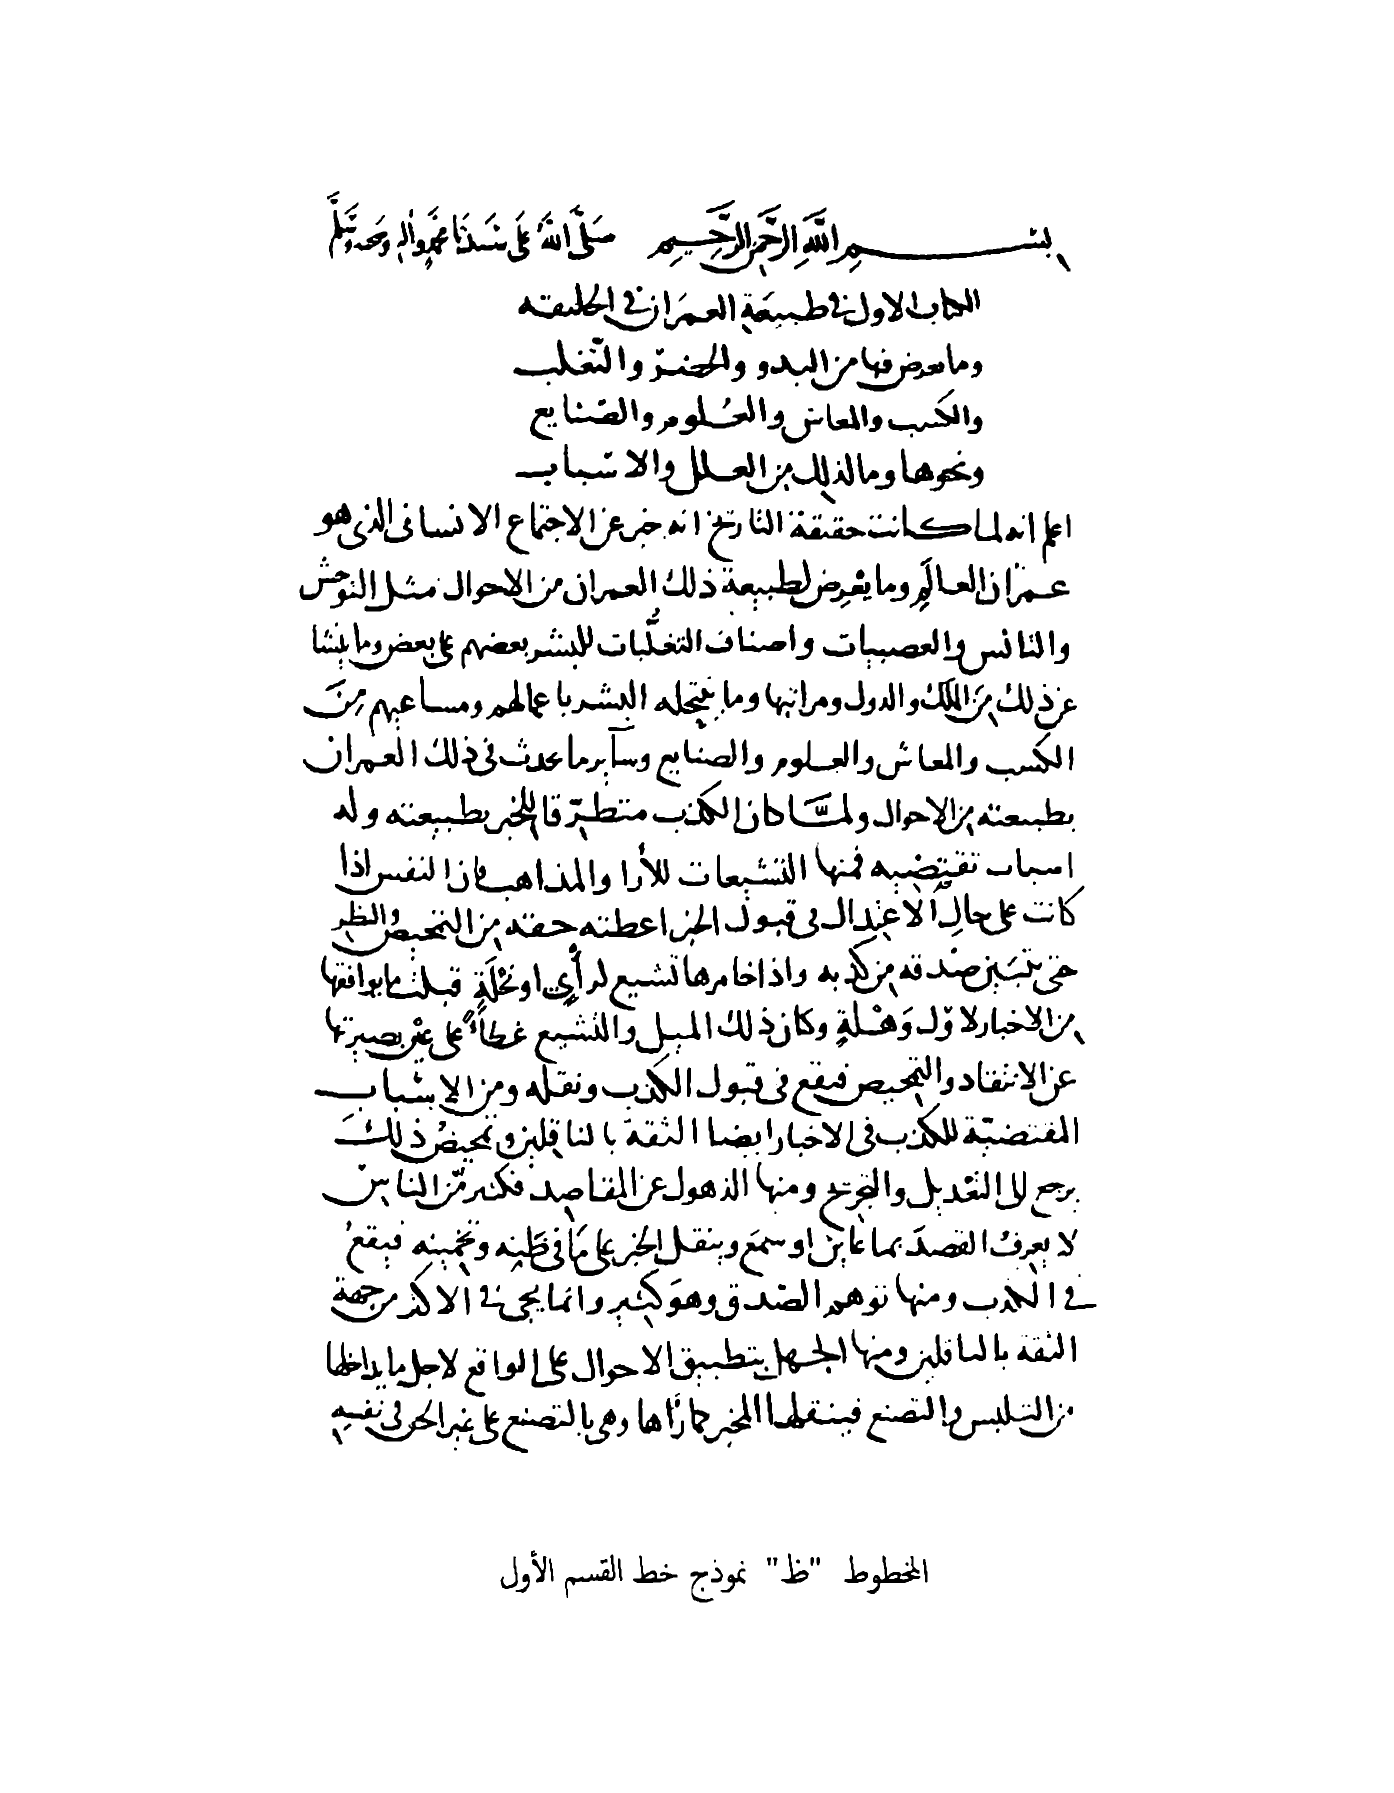 بســـم اللَّهِ الرَّحمَنِ الرَّحِيمِ صَلَّى اللهُ عَلَى سَيدنَا محَمَّدٍ واله وصحبه وسَلَّم
الكتاب الاول في طبيعَةِ العمرَان في الخليقه
وما يعرض فيها من البدو والحضر والتّغلب
والكَسب والمعاش والعُلوم والصّنايع
ونحوها وما لذلك من العلل والاسباب
اعلم انه لما كانت حقيقة التاريخ انه خبر عن الاجتماع الانساني الذي هو
عمرَان العالَمِ وما يعْرِض لطبيعة ذلك العمران من الاحوال مثل التوحش
والتانس والعصبيات واصناف التغلُّبات للبشر بعضهم على بعض وما ينشا
عن ذلك مِنَ الملك والدول ومراتبها وما ينتحله البشر باعمالهم ومساعيهم مِنَ
الكسب والمعاش والعلوم والصنايع وسآير ما يحدث في ذلك العمران
بطبيعته من الاحوال ولمَّا كان الكذب متطرّقا للخبر بطبيعته وله
اسباب تقتضيه فمنها التشيعات للأرا والمذاهب فان النفس اذا
كانت على حالِ الاعتِدال في قبول الخبر اعطته حقه من التمحيص والنظر
حتى تتبَين صدقه من كذبه واذا خامرها تشيع لرأيٍ او نحْلَةٍ قبلت ما يوافقها
من الاخبار لاوّل وَهْلةٍ وكان ذلك الميل والتشيع غطآءً على عيْن بصيرتها
عن الانتقاد والتمحيص فيقع في قبول الكذب ونقله ومن الاسْباب
المقتضيّة للكذب في الاخبار ايضا الثقة بالناقلين وتمحيصُ ذلكَ
يرجع الى التعْديل والتجريح ومنها الذهول عن المقاصِد فكثير مّن الناس
لا يعرِفُ القصدَ بما عاين او سمعَ وينقل الخبر على مَا في ظَنِه وتخمِينِه فيقعُ
في الكذب ومنها توهم الصّدق وهوَ كثير وانما يجي في الاكثر من جهة
الثقة بالناقلين ومنها الجهل بتطبيق الاحوال على الواقع لاجل ما يداخلها
من التلبيس والتصنع فينقلها المخبر كما رَأها وهي بالتصنع على غير الحق في نفسِهِ
المخطوط "ظ" نموذج خط القسم الأول